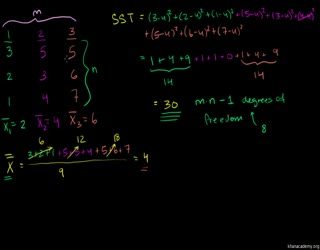 m
1 2 3
3 5 5
2 3 6
1 4 7
n
X̄₁=2 X̄₂=4 X̄₃=6
6 12 18
X̿ = 3+2+1+5+3+4+5+6+7 / 9 = 4
SST = (3-4)²+(2-4)²+(1-4)²+(5-4)²+(3-4)²+(4-4)²
+(5-4)²+(6-4)²+(7-4)²
= 1+4+9+1+1+0+1+4+9
14 14
= 30 m·n-1 degrees of
freedom
8
khanacademy.org